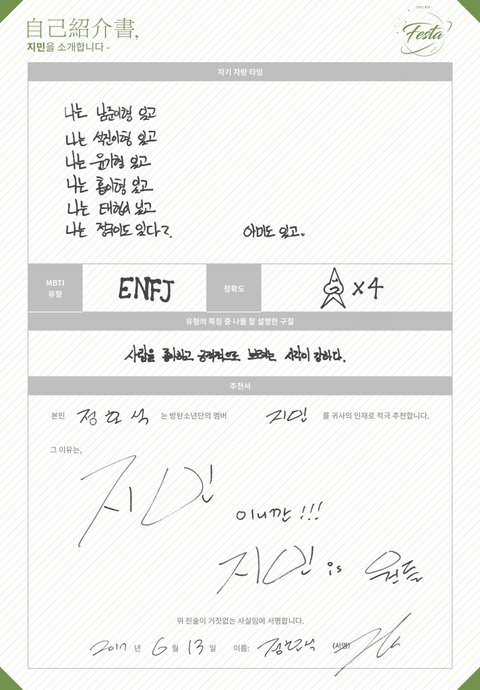 自己紹介書,
지민을 소개합니다 -
Festa
자기 자랑 타임
나는 남준이형 있고
나는 석진이형 있고
나는 윤기형 있고
나는 홉이형 있고
나는 태형이 있고
나는 정국이도 있다?
아미도 있고.
MBTI 유형
ENFJ
정확도
x4
유형의 특징 중 나를 잘 설명한 구절
사람을 좋아하고 긍정적으로 보려는 시각이 강하다.
추천서
본인 정호석 는 방탄소년단의 멤버 지민 를 귀사의 인재로 적극 추천합니다.
그 이유는,
지민
이니깐 !!!
지민 is 뭔들
위 진술이 거짓없는 사실임에 서명합니다.
2017 년 6 월 13 일 이름: 정호석 (서명)